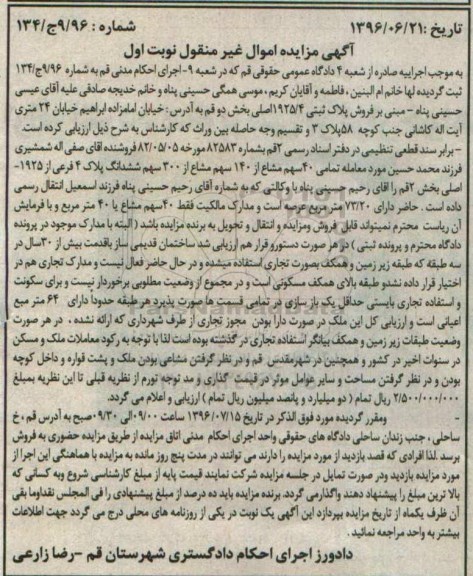 تاریخ :۱۳۹۶/۰۶/۲۱ شماره : ۹/۹۶ج/۱۳۴
آگهی مزایده اموال غیر منقول نوبت اول
به موجب اجراییه صادره از شعبه ۴ دادگاه عمومی حقوقی قم که در شعبه ۹-اجرای احکام مدنی قم به شماره ۹/۹۶ج/۱۳۴
ثبت گردیده لها خانم ام البنین ، فاطمه و آقایان کریم ، موسی همگی حسینی پناه و خانم خدیجه صادقی علیه آقای عیسی
حسینی پناه - مبنی بر فروش پلاک ثبتی ۱۹۲۵/۴اصلی بخش دو قم به آدرس : خیابان امامزاده ابراهیم خیابان ۲۴ متری
آیت اله کاشانی جنب کوچه ۵۸پلاک ۳ و تقسیم وجه حاصله بین وراث که کارشناس به شرح ذیل ارزیابی کرده است.
- برابر سند قطعی تنظیمی در دفتر اسناد رسمی ۲قم بشماره ۸۲۵۸۳ مورخه ۸۲/۰۵/۰۵ فروشنده اقای صفی اله شمشیری
فرزند محمد حسین مورد معامله تمامی ۴۰سهم مشاع از ۱۴۰ سهم مشاع از ۳۰۰ سهم ششدانگ پلاک ۴ فرعی از ۱۹۲۵-
اصلی بخش ۲قم را اقای رحیم حسینی پناه با وکالتی که به شماره آقای رحیم حسینی پناه فرزند اسمعیل انتقال رسمی
داده است . حاضر دارای ۷۳/۲۰ متر مربع عرصه است و مدارک مالکیت فقط ۴۰سهم مشاع یا ۴۰ متر مربع و با فرمایش
آن ریاست محترم نمیتواند قابل فروش ومزایده و انتقال و تحویل به برنده مزایده باشد ( البته با مدارک موجود در پرونده
دادگاه محترم و پرونده ثبتی ) در هر صورت دستورو قرار هم ارزیابی شد ساختمان قدیمی ساز باقدمت بیش از ۳۰سال در
سه طبقه که طبقه زیر زمین و همکف بصورت تجاری استفاده میشده و در حال حاضر فعال نیست و مدارک تجاری هم در
اختیار قرار داده نشدو طبقه بالای همکف مسکونی است و در مجموع از وضعیت مطلوبی برخوردار نیست و برای سکونت
و استفاده تجاری بایستی حداقل یک باز سازی در تمامی قسمت ها صورت پذیرد هر طبقه حدودا دارای ۶۴ متر مربع
اعیانی است و ارزیابی کل این ملک در صورت دارا بودن مجوز تجاری از طرف شهرداری که ارائه نشده ، در هر صورت
وضعیت طبقات زیر زمین و همکف بیانگر استفاده تجاری در گذشته بوده است لذا با توجه به رکود معاملات ملک و مسکن
در سنوات اخیر در کشور و همچنین در شهرمقدس قم و در نظر گرفتن مشاعی بودن ملک و پشت قواره و داخل کوچه
بودن و در نظر گرفتن مساحت و سایر عوامل موثر در قیمت گذاری و مد توجه تورم از نظریه قبلی تا این نظریه بمبلغ
۲/۵۰۰/۰۰۰/۰۰۰ ریال تمام ( دو میلیارد و پانصد میلیون ریال تمام ) ارزیابی و اعلام می گردد.
- ومقرر گردیده مورد فوق الذکر در تاریخ ۱۳۹۶/۰۷/۱۵ ساعت ۰۹/۰۰الی ۰۹/۳۰صبح به آدرس قم ، خ
ساحلی ، جنب زندان ساحلی دادگاه های حقوقی واحد اجرای احکام مدنی اتاق مزایده از طریق مزایده حضوری به فروش
برسد .لذا افرادی که قصد بازدید از مورد مزایده را دارند می توانند در مدت پنج روز مانده به مزایده با هماهنگی این اجرا از
مورد مزایده بازدید ودر صورت تمایل در جلسه مزایده شرکت نمایند قیمت پایه از مبلغ کارشناسی شروع وبه کسانی که
بالا ترین مبلغ را پیشنهاد دهند واگذارمی گردد. برنده مزایده باید ده درصد از مبلغ پیشنهادی را فی المجلس نقداومابقی
آن ظرف یکماه از تاریخ مزایده بپردازد این آگهی یک نوبت در یکی از روزنامه های محلی درج می گردد جهت اطلاعات
بیشتر به واحد مراجعه نمائید .
دادورز اجرای احکام دادگستری شهرستان قم -رضا زارعی